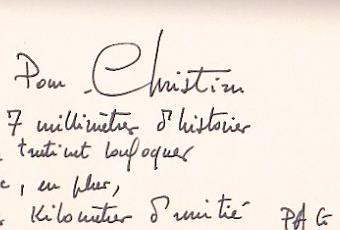 Pour Christian
7 millimètres d'histoires
tout loufoques
, en plus,
kilomètres d'amitié PAG